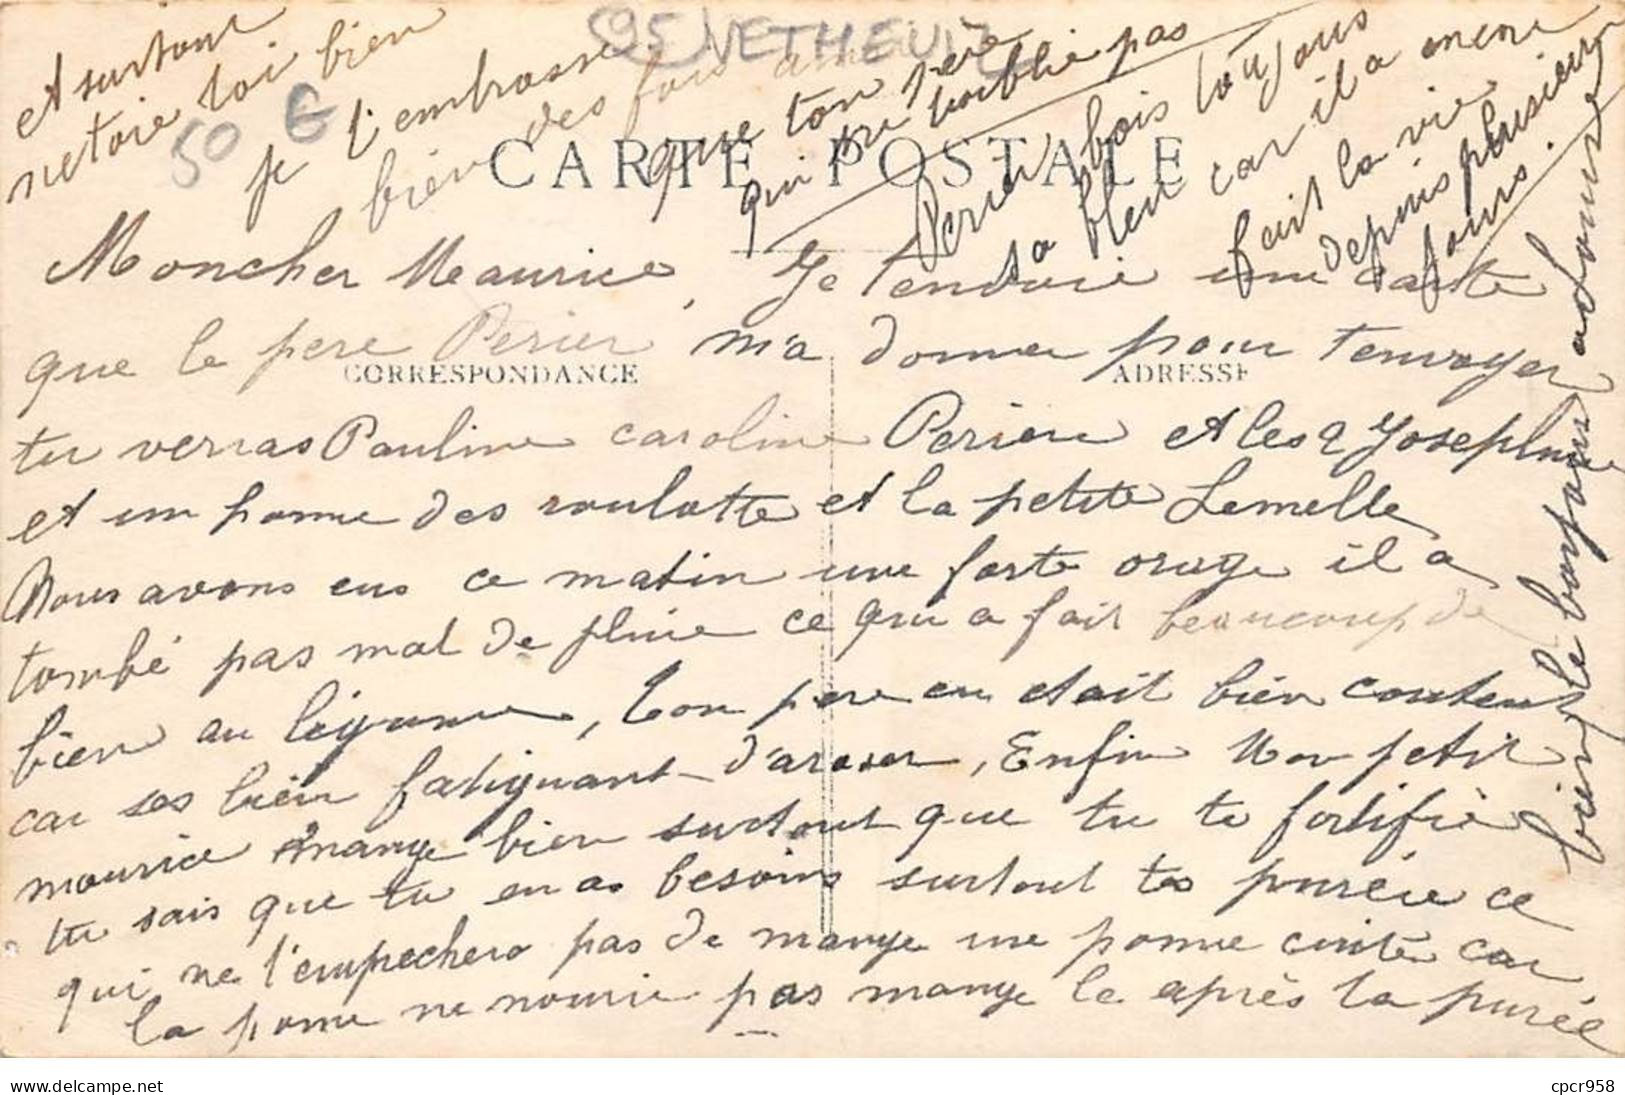 (95) VETHEUIL
50 €
CARTE POSTALE
CORRESPONDANCE
ADRESSE
Moncher Maurice, Je t'envoie une carte
que le pere Perier m'a donner pour t'envoyer
tu verras Pauline caroline Periere et les 2 Josephine
et un home des roulotte et la petite Lemelle
Nous avons eus ce matin une forte orage il a
tombé pas mal de pluie ce qui a fait beaucoup de
bien au légume, ton pere en etait bien content
car ses bien fatiguant d'aroser, Enfin Mon petit
mourice mange bien surtout que tu te fortifie
tu sais que tu en as besoins surtout tes purée ce
qui ne t'empechera pas de mange une pomme cuite car
la pome ne nourrie pas mange le après ta purée
bien le bonjours a
et surtout
netoie toi bien
je t'embrasse
bien des fois
que ton père
qui ne t'oublie pas
Perier bois toujours
sa bleu car il a encore
fait la vie
depuis plusieurs
jours.
cpcr958